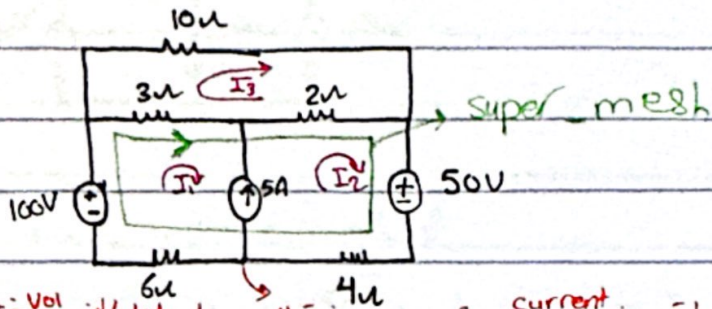 10Ω
I3
3Ω 2Ω
super_mesh
100V I1 5A I2 50V
6Ω 4Ω
vol current